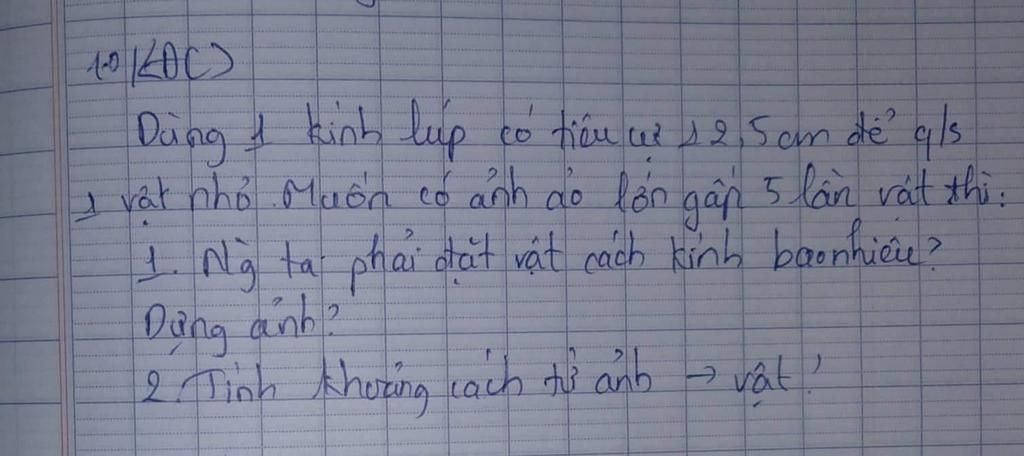 Dùng 1 kính lúp có tiêu cự 12,5cm để q/s
1 vật nhỏ. Muốn có ảnh ảo lớn gấp 5 lần vật thì:
1. Ng ta phải đặt vật cách kính bao nhiêu?
Dựng ảnh?
2. Tính khoảng cách từ ảnh → vật?